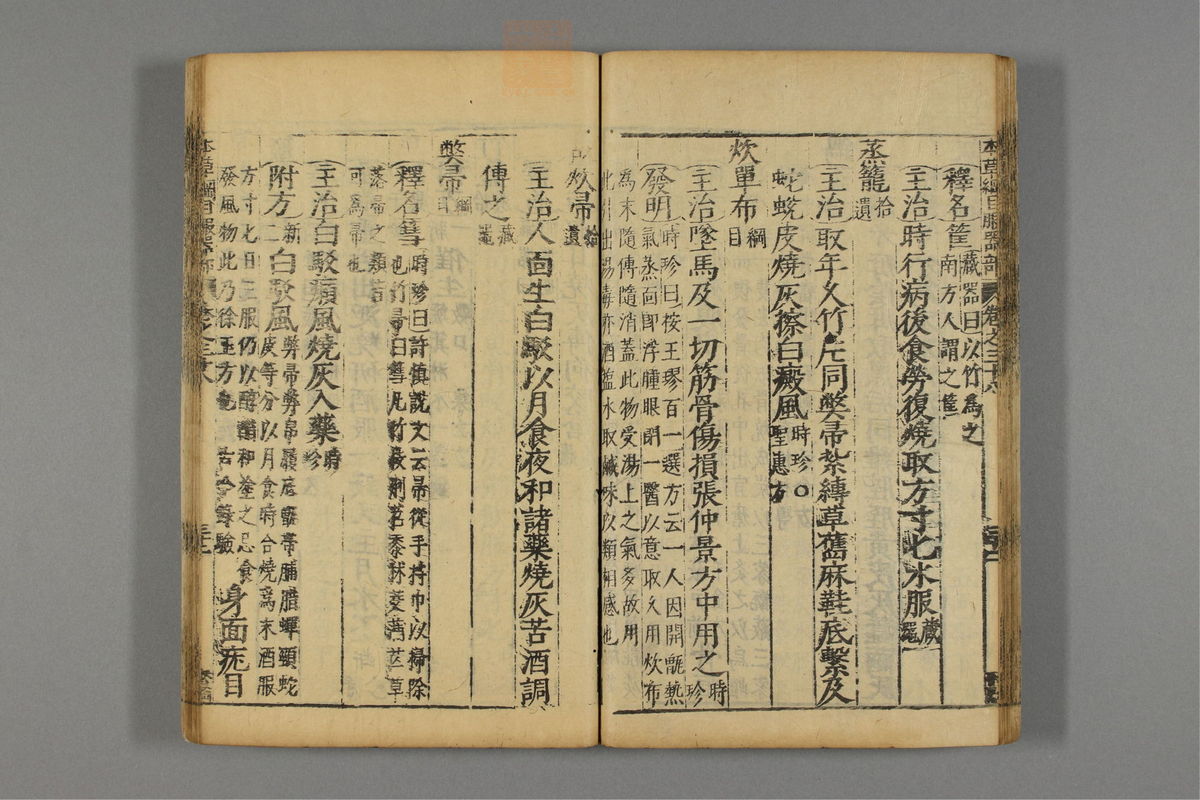 本草綱目服器部 卷之三十八
釋名筐藏器曰以竹為之
南方人謂之筐
主治時行病後食勞復燒取方寸匕水服藏器
蒸籠拾遺
主治取年久竹片同弊帚紮縛草舊麻鞋底繫及
蛇蛻皮燒灰擦白癜風時珍○聖惠方
炊單布綱目
主治墜馬及一切筋骨傷損張仲景方中用之時珍
發明時珍曰按王璆百一選方云一人因開甑熱
氣蒸面即浮腫眼閉一醫以意取久用炊布
為末隨傅隨消蓋此物受湯上之氣多故用
此引出湯毒亦猶鹽水取鹹味以類相感也
故炊帚拾遺
主治人面生白駁以月食夜和諸藥燒灰苦酒調
傅之藏器
弊帚綱目
釋名篲時珍曰許慎說文云帚從手持巾以掃除
也竹帚曰篲凡竹枝荊苕黍秫茭蒲芒草
落帚之類皆
可為帚也
主治白駁癩風燒灰入藥時珍
附方新二白駁風弊帚弊帛履底甑帶脯腊蟬頸蛇
皮等分以月食時合燒為末酒服
方寸匕日三服仍以醇醋和塗之忌食
發風物此乃徐王方也古今錄驗
身面疣目
本草綱目服器部 卷之三十八